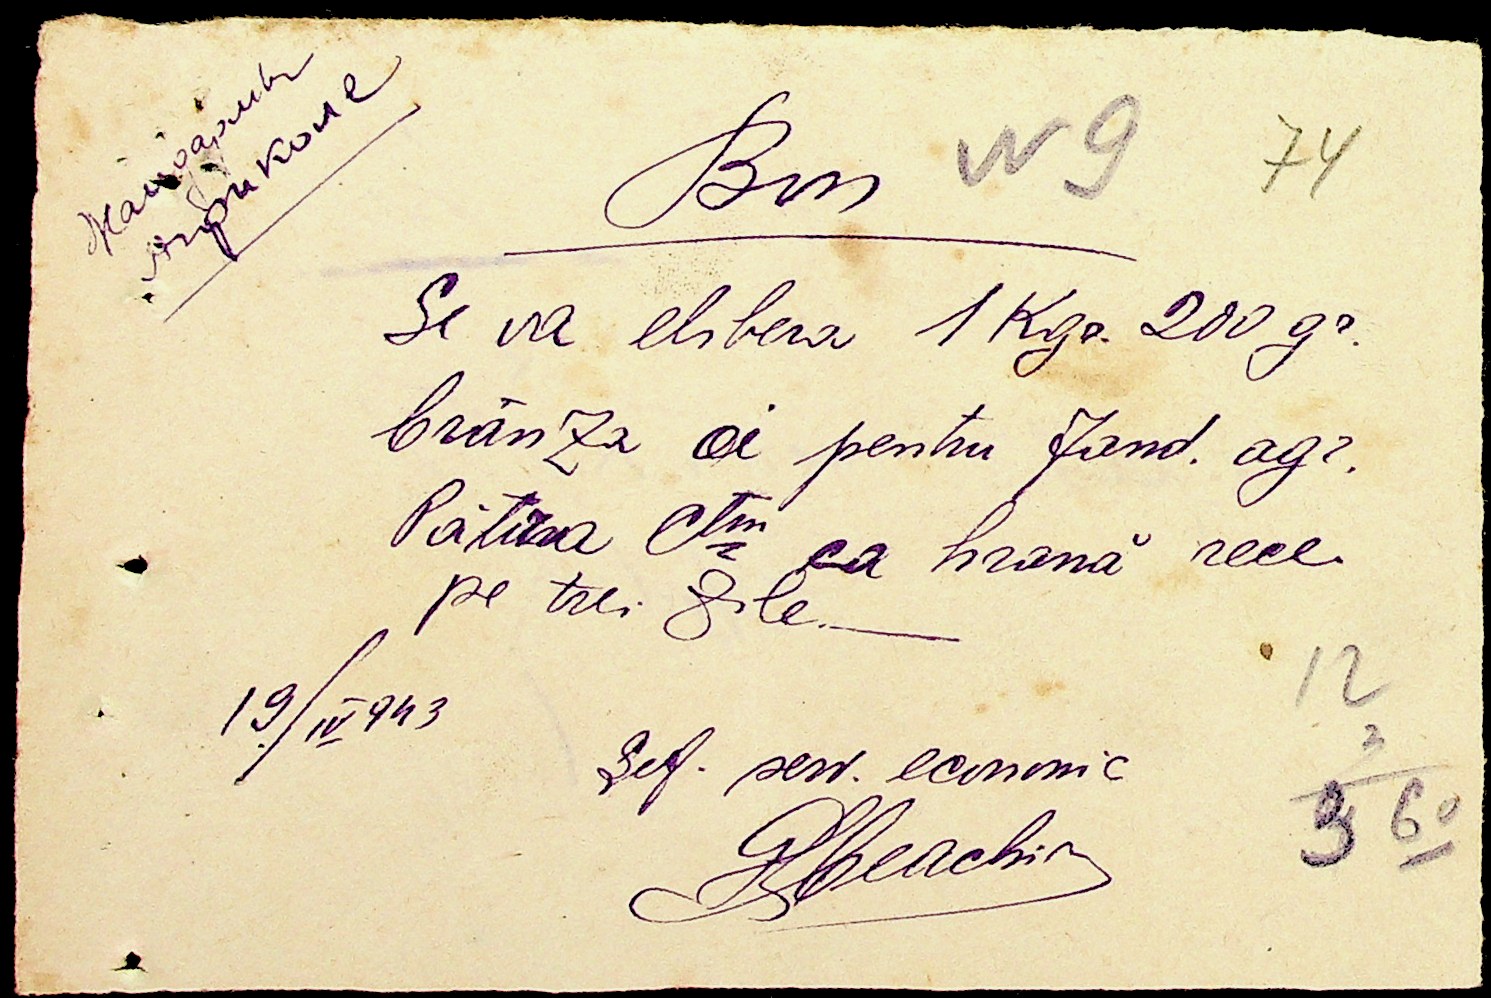 Жандармы
Агриколе
Bon
N 9
74
Se va elibera 1 Kgr. 200 gr.
brânza oi pentru Jand. agr.
ca hrană rece
pe trei zile.
19/IV 943
Șef. serv. economic
12
3
3 60